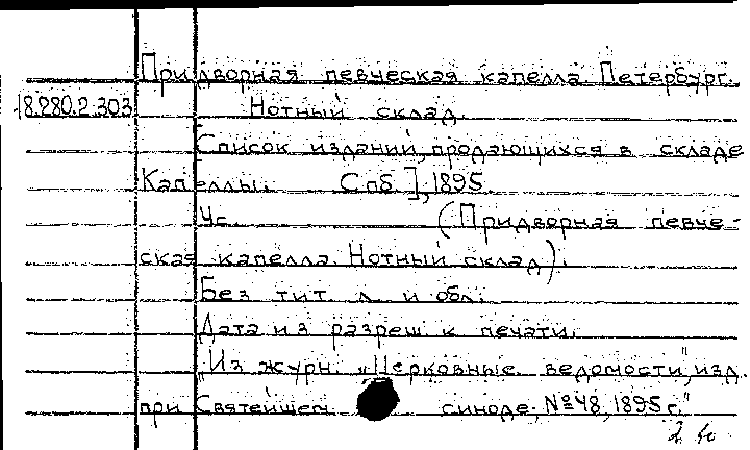 Придворная певческая капелла. Петербург.
18.280.2.303 Нотный склад.
[Список изданий, продающихся в складе
Капеллы. Спб.], 1895.
4с. (Придворная певче-
ская капелла. Нотный склад).
Без тит. л. и обл.
Дата из разреш. к печати.
"Из журн. „Церковные ведомости", изд.
при Святейшем синоде, №48, 1895 г."